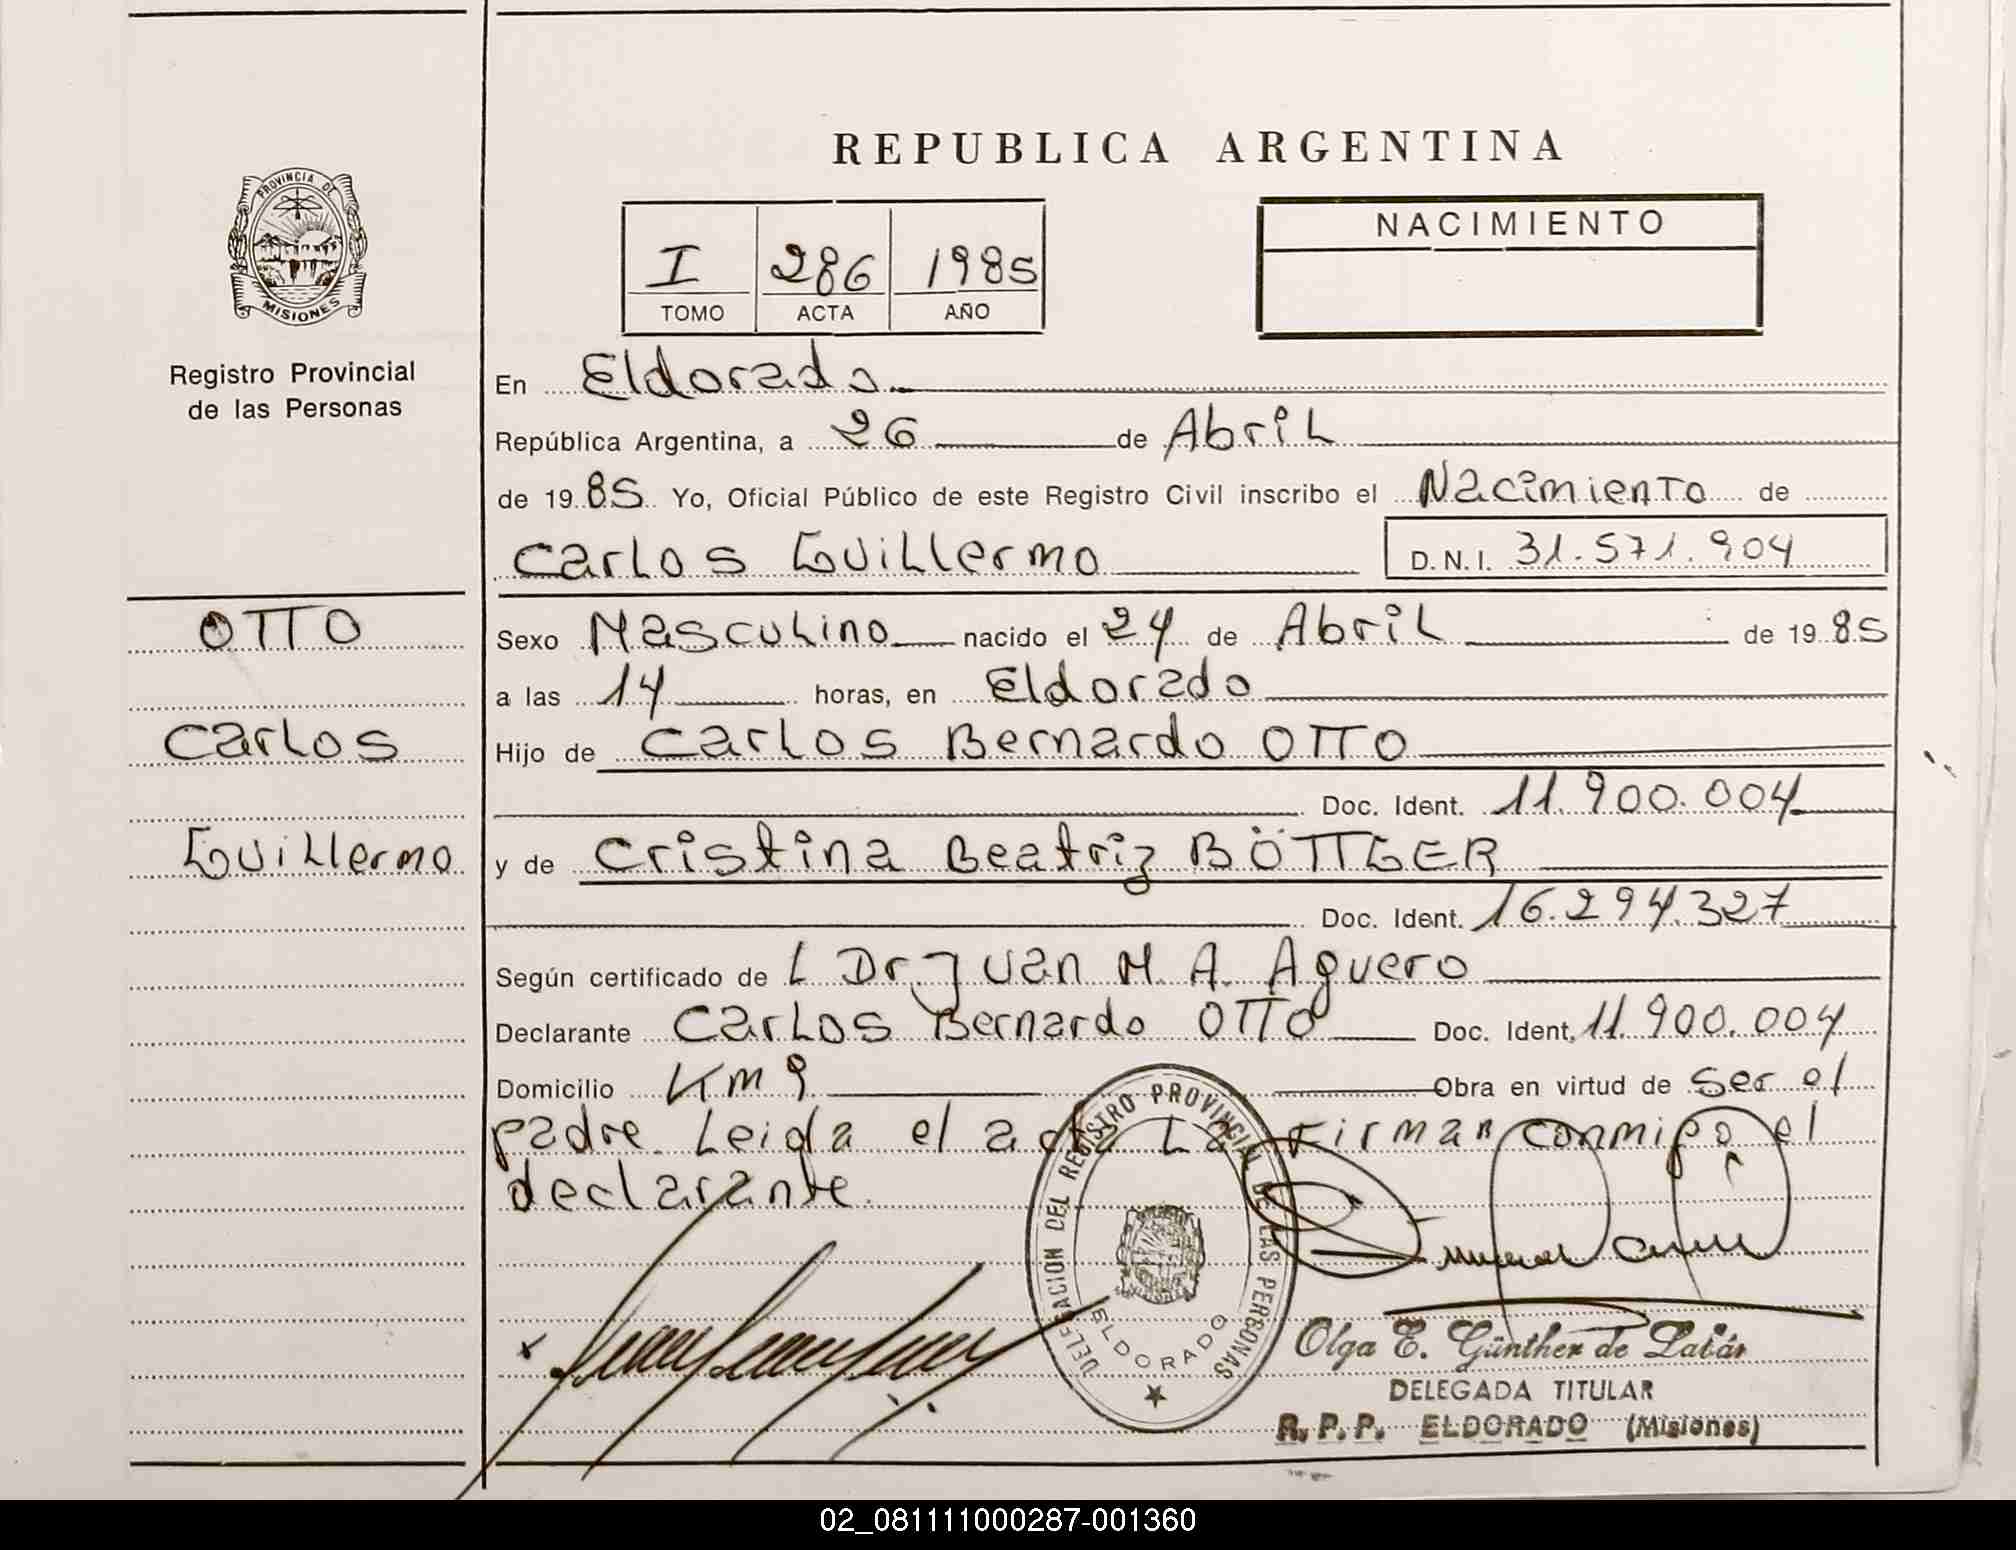 REPUBLICA ARGENTINA
PROVINCIA DE
MISIONES
Registro Provincial
de las Personas
I 286 1985
TOMO ACTA AÑO
NACIMIENTO
En Eldorado
República Argentina, a 26 de Abril
de 1985 Yo, Oficial Público de este Registro Civil inscribo el Nacimiento de
Carlos Guillermo D.N.I. 31.571.904
OTTO
Carlos
Guillermo
Sexo Masculino nacido el 24 de Abril de 1985
a las 14 horas, en Eldorado
Hijo de Carlos Bernardo OTTO
Doc. Ident. 11.900.004
y de Cristina Beatriz BÖTTGER
Doc. Ident. 16.294.327
Según certificado de L Dr Juan M. A. Aguero
Declarante Carlos Bernardo OTTO Doc. Ident. 11.900.004
Domicilio Km 9 Obra en virtud de Ser el
padre. Leida el acta La Firman conmigo el
declarante.
DELEGACION DEL REGISTRO PROVINCIAL DE LAS PERSONAS
ELDORADO
Olga E. Günther de Latár
DELEGADA TITULAR
R. P. P. ELDORADO (Misiones)
02_081111000287-001360